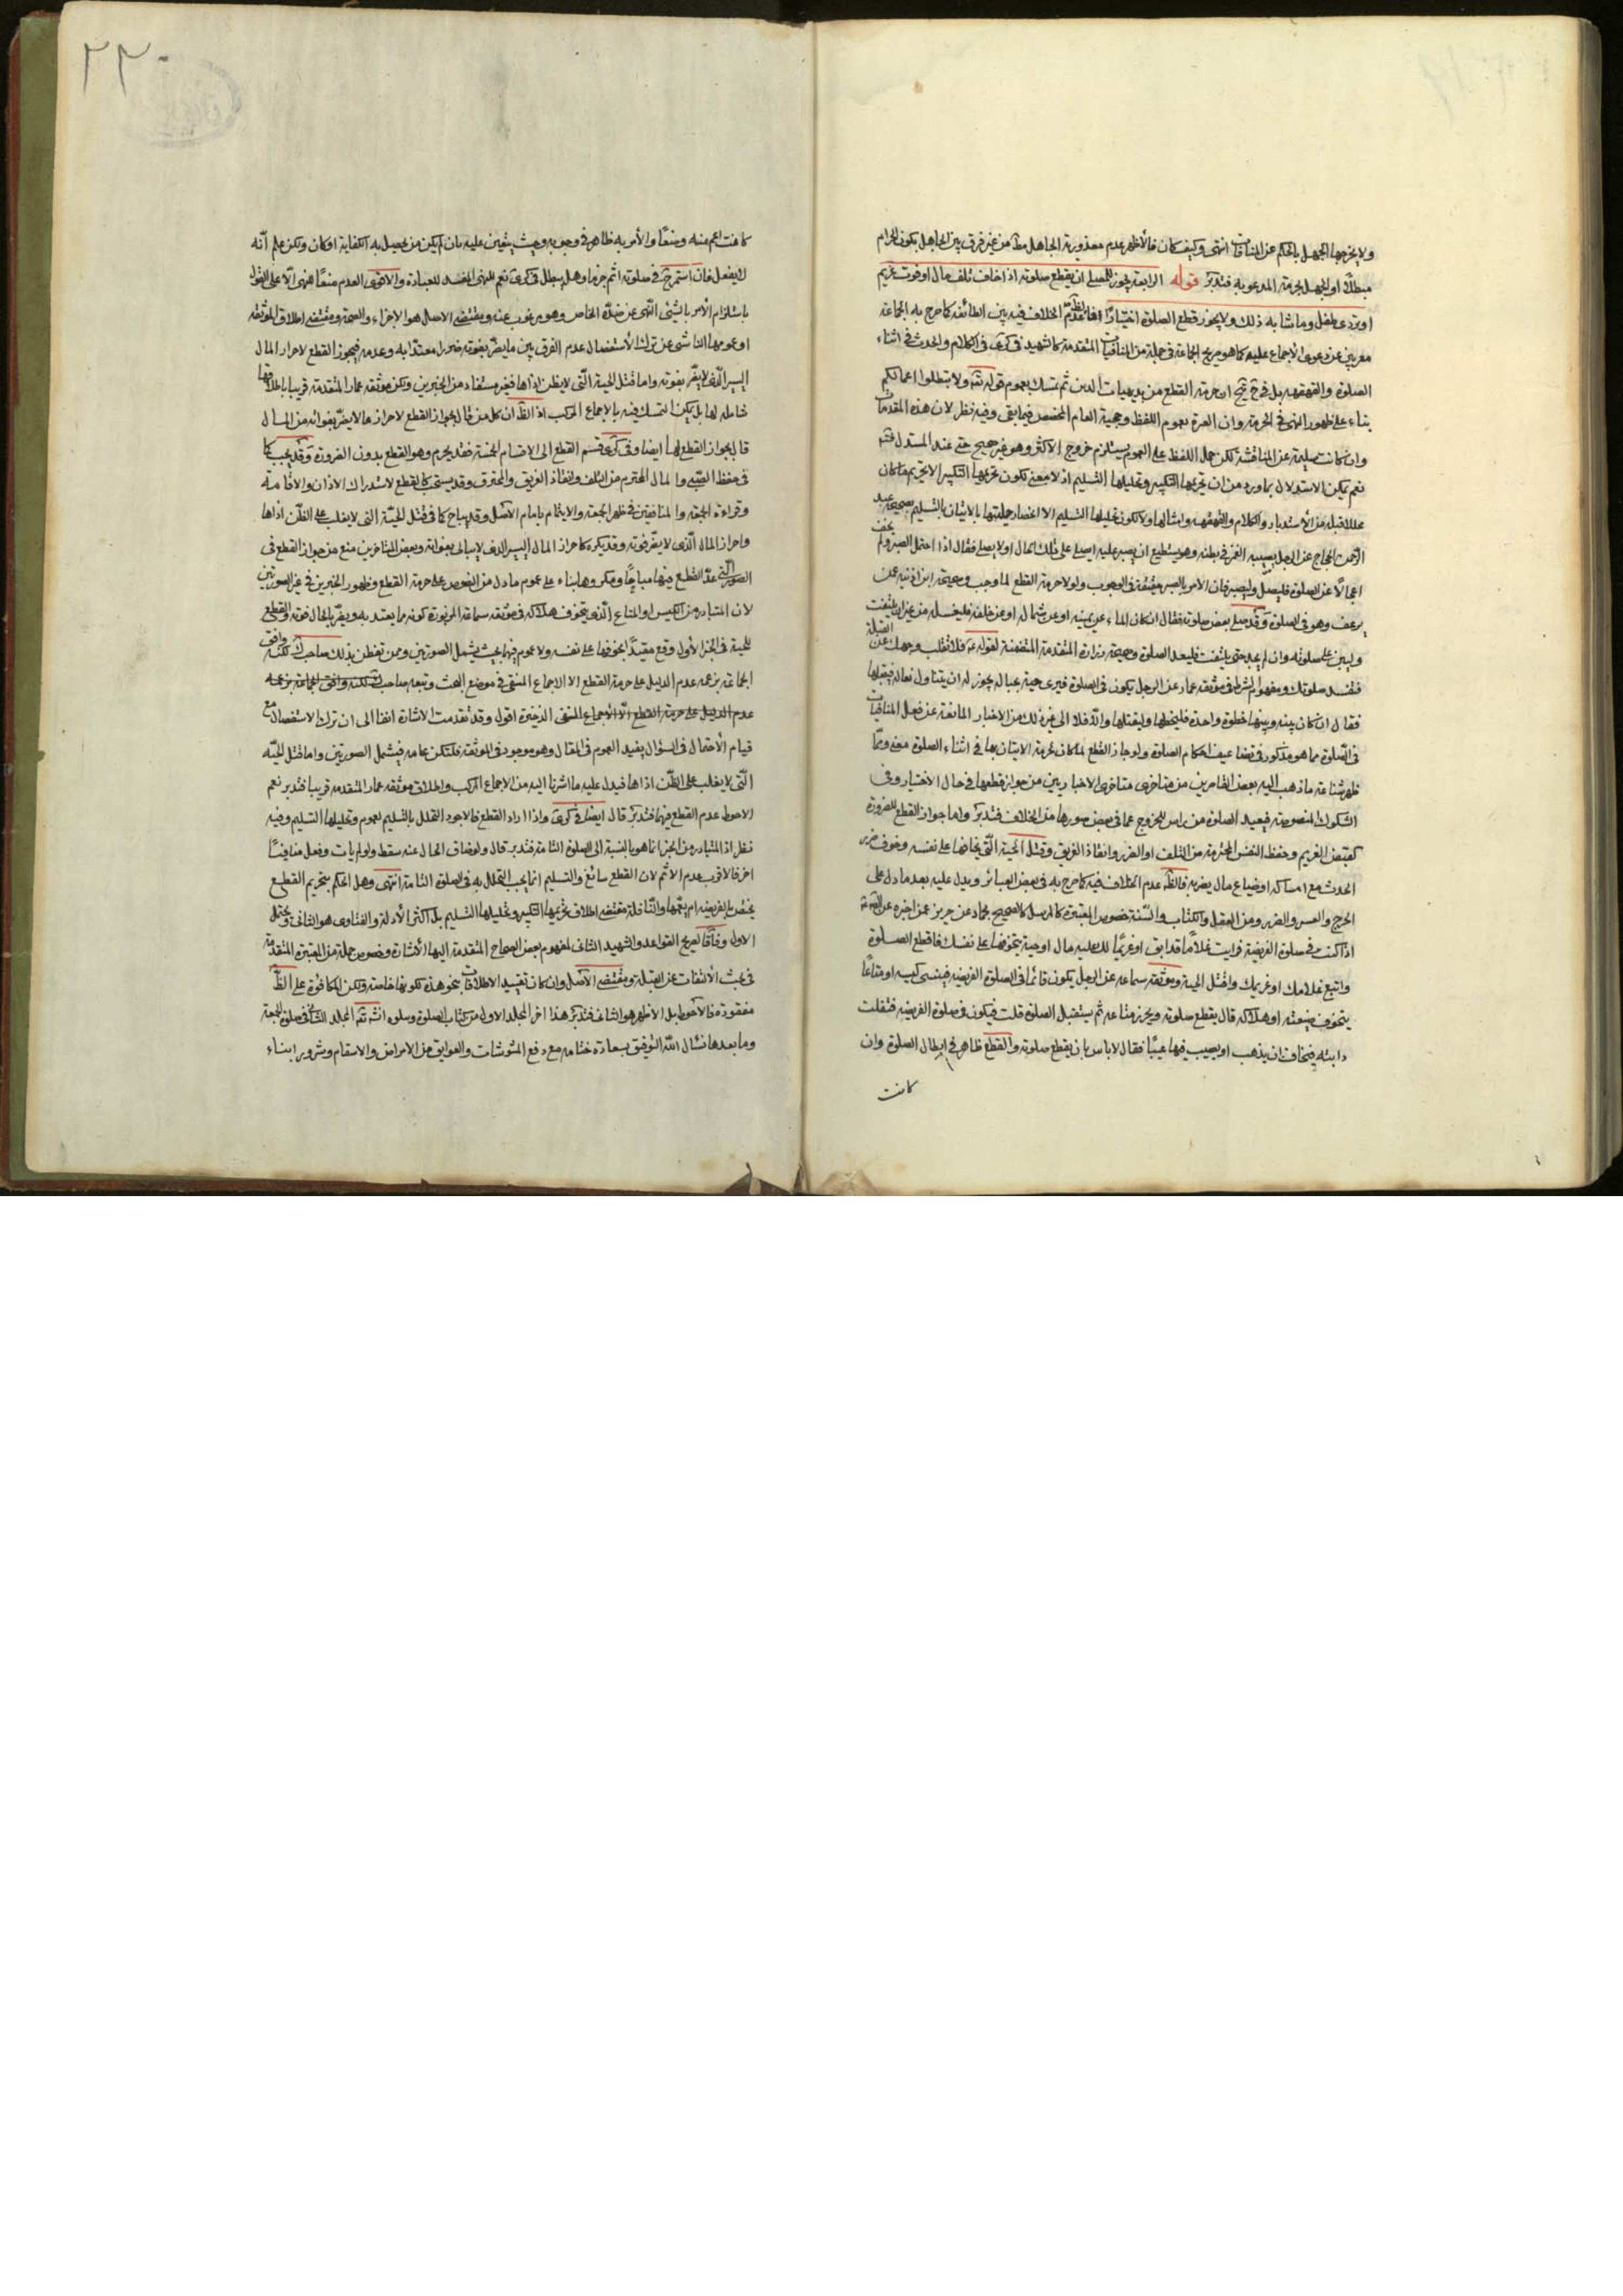 ولا يخرجها الجهل بالحكم عن المنافيات انتهى وكيف كان فالأظهر عدم معذورية الجاهل مط من غير فرق بين الجاهل بكون الحرام
مبطلا او الجهل بحرمة المدعو به فتدبر قوله الرابعة يجوز للمصلى ان يقطع صلوته اذا خاف تلف مال او فوت غريم
او تردى طفل وما شابه ذلك ولا يجوز قطع الصلوة اختيارا فالظ عدم الخلاف فيه بين الطائفة كما صرح به الجماعة
معربين عن دعوى الاجماع عليه كما هو صريح الجماعة فى جملة من المنافيات المتقدمة كالشهيد فى كرى فى الكلام والحدث فى اثناء
الصلوة والقهقهة بل فى ح ان حرمة القطع من بديهيات الدين ثم تمسك بعموم قوله تع ولا تبطلوا اعمالكم
بناء على ظهور النهى فى الحرمة وان العبرة بعموم اللفظ وحجية العام المخصص فيما بقى وفيه نظر لان هذه المقدمات
وان كانت سليمة عن المناقشة لكن حمل اللفظ على العموم يستلزم خروج الاكثر وهو غير صحيح حتى عند المستدل فته
نعم يمكن الاستدلال بما ورد من ان تحريمها التكبير وتحليلها التسليم اذ لا معنى لكون تحريمها التكبير الا تحريم ما كان
محللا قبله من الأستدبار والكلام والقهقهة وامثالها ولا لكون تحليلها التسليم الا انحصار حليتها بالاتيان بالتسليم بصحيحة عبد
الرحمن الحجاج عن الرجل يصيبه الغمز فى بطنه وهو يستطيع ان يصبر عليه ايصلى على تلك الحال او لا يصلى فقال اذا احتمل الصبر ولم يخف
اعجالا عن الصلوة فليصل وليصبر فان الامر بالصبر مقتضى الوجوب ولولا حرمة القطع لما وجب وصحيحة ابن اذينة عمن
يرعف وهو فى الصلوة وقد صلى بعض صلوته فقال ان كان الماء عن يمينه او عن شماله او عن خلفه فليغسله من غير ان يلتفت
وليبن على صلوته وان لم يجد حتى يلتفت فليعد الصلوة وصحيحة زرارة المتقدمة المتضمنة لقوله ع فلا تقلب وجهك عن القبلة
فتفسد صلوتك ومفهوم الشرط فى موثقة عمار عن الرجل يكون فى الصلوة فيرى حية بحياله يجوز له ان يتناول نعاله فيقتلها
فقال ان كان بينه وبينها خطوة واحدة فليخطها وليقتلها والا فلا الى غير ذلك من الاخبار المانعة عن فعل المنافيات
فى الصلوة مما هو مذكور فى تضاعيف احكام الصلوة ولو جاز القطع لما كان لحرمة الاتيان بها فى اثناء الصلوة معنى وممّا
ظهر شناعة ما ذهب اليه بعض القاصرين من متاخرى متاخرى الاخباريين من جواز قطعها فى حال الاختيار وفى
الشكوك المنصوصة فيعيد الصلوة من راس للخروج عما فى بعض صورها من الخلاف فتدبر واما جواز القطع للضرورة
كقبض الغريم وحفظ النفس المحترمة من التلف او الضرر وانقاذ الغريق وقتل الحية التى يخافها على نفسه وخوف ضرر
الحدث مع امساكه او ضياع مال يضر به فالظ عدم الخلاف فيه كما صرح به فى بعض العبائر ويدل عليه بعد ما دل على
الحرج والعسر والضرر ومن العقل والكتاب والسنة خصوص المعتبرة كالمرسل كالصحيح بحماد عن حريز عمن اخبره عن ابى عبد الله ع
اذا كنت فى صلوة الفريضة فرايت غلاما قد ابق او غريما لك عليه مال او حية تتخوفها على نفسك فاقطع الصلوة
واتبع غلامك او غريمك واقتل الحية وموثقة سماعة عن الرجل يكون قائما فى الصلوة الفريضة فينسى كيسه او متاعا
يتخوف ضيعته او هلاكه قال يقطع صلوته ويحرز متاعه ثم يستقبل الصلوة قلت فيكون فى صلوة الفريضة فتفلت
دابته فيخاف ان يذهب او يصيب فيها عيبا فقال لا باس بان يقطع صلوته والقطع ظاهر فى ابطال الصلوة وان
كانت
٢٢٠
كانت اعم منه وضعا والأمر به ظاهر فى وجوبه وحيث يتعين عليه بان لم يكن من يحصل به الكفاية او كان ولكن علم أنّه
لا يفعل فان استمر ح فى صلوته اثم جزما وهل يبطل فى كرى نعم للنهى المفسد للعبادة والاقوى العدم منعا للنهى الّا على القول
باستلزام الأمر بالشئ النهى عن ضدّه الخاص وهو مرغوب عنه ومقتضى الاصل هو الإجزاء والصحة ومقتضى اطلاق الموثقة
او عمومها الناشى عن ترك الأستفصال عدم الفرق بين ما يضر بفوته ضررا معتدا به وعدمه فيجوز القطع لاحراز المال
اليسير الّذى لا يضر بفوته واما قتل الحية الّتى لا يظن اذاها فغير مستفاد من الخبرين ولكن موثقة عمار المتقدمة قريبا باطلاقها
شاملة لها بل يمكن التمسك فيه بالاجماع المركب اذ الظ ان كل من قال بجواز القطع لاحراز ما لا يضر بفواته من المال
قال بجواز القطع لها ايضا وفى كرى قسم القطع الى الاقسام الخمسة فقد يحرم وهو القطع بدون الضرورة وقد يجب كما
فى حفظ الصبى والمال المحترم من التلف وانقاذ الغريق والمحترق وقد يستحب كالقطع لاستدراك الاذان والاقامة
وقراءة الجمعة والمنافقين فى ظهر الجمعة والايتمام بامام الأصل وقد يباح كما فى قتل الحيّة التى لا يغلب على الظن اذاها
واحراز المال الّذى لا يضر فوته وقد يكره كاحراز المال اليسير الذى لا يبالى بفواته وبعض المتاخرين منع من جواز القطع فى
الصور التى عدّ القطع فيها مباحا ومكروها بناء على عموم ما دل من النصوص على حرمة القطع وظهور الخبرين فى غير الصورتين
لان المتبادر من الكيس او المتاع الّذى يتخوف هلاكه فى موثقة سماعة المزبورة كونه مما يعتد به ويضر بالحال فوته والقطع
للحية فى الخبر الأول وقع مقيدا بخوفها على نفسه ولا عموم فيها بحيث يشمل الصورتين وممن تفطن بذلك صاحب ك لكنّه وافق
الجماعة بزعمه عدم الدليل على حرمة القطع الا الاجماع المنتفى فى موضع البحث وتبعه صاحب
الذخيرة اقول وقد تقدمت الاشارة انفا الى ان ترك الاستفصال مع
قيام الأحتمال فى السؤال يفيد العموم فى المقال وهو موجود فى الموثقة فلتكن عامة فيشمل الصورتين واما قتل الحيّة
الّتى لا يغلب على الظن اذاها فيدل عليه ما اشرنا اليه من الاجماع المركب واطلاق موثقة عمار المتقدمة قريبا فتدبر نعم
الاحوط عدم القطع فيها فتدبر قال ايضا فى كرى واذا اراد القطع فالاجود التحلل بالتسليم لعموم وتحليلها التسليم وفيه
نظر اذ المتبادر من الخبر انما هو بالنسبة الى الصلوة التامة فتدبر قال ولو ضاق الحال عنه سقط ولو لم يات وفعل منافيا
اخر فالاقرب عدم الاثم لان القطع سائغ والتسليم انما يجب التحلل به فى الصلوة التامة انتهى وهل الحكم بتحريم القطع
يختص بالفريضة ام يعمها والنافلة مقتضى اطلاق تحريمها التكبير وتحليلها التسليم بل اكثر الأدلة والفتاوى هو الثانى ويحتمل
الاول وفاقا لصريح القواعد والشهيد الثانى لمفهوم بعض الصحاح المتقدمة اليها الأشارة وخصوص جملة من المعتبرة المتقدمة
فى بحث الالتفات عن القبلة ومقتضى الأصل وان كان تقييد الاطلاقات بنحو هذه لكونها خاصة ولكن المكافؤة على الظ
مفقودة فالأحوط بل الأظهر هو الثانى فتدبر هذا اخر المجلد الاول من كتاب الصلوة وسلوه انش تع المجلد الثانى فى صلوة الجمعة
وما بعدها نسال الله التوفيق بسعادة ختامه مع دفع المشوشات والعوايق من الامراض والاسقام وشرور ابناء